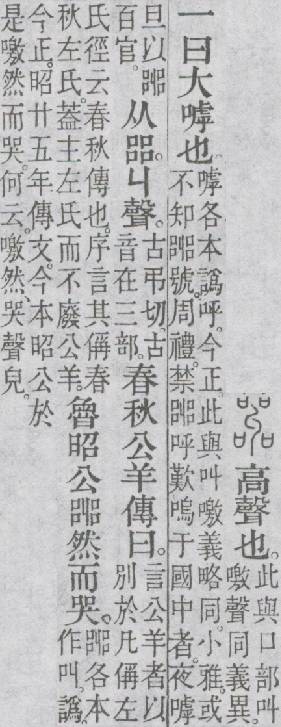 高聲也。此與口部叫噭聲同義異。
一曰大嘑也。嘑各本譌呼。今正。此與叫噭義略同。小雅。或不知嘂號。周禮。禁嘂呼歎嗚于國中者。夜嘑
旦以嘂百官。从㗊。丩聲。古弔切。古音在三部。春秋公羊傳曰。言公羊者以別於凡偁左
氏徑云春秋傳也。序言其偁春秋左氏。葢主左氏而不廢公羊。魯昭公嘂然而哭。嘂各本作叫。譌。
今正。昭廿五年傳文。今本昭公於是噭然而哭。何云。噭然哭聲皃。